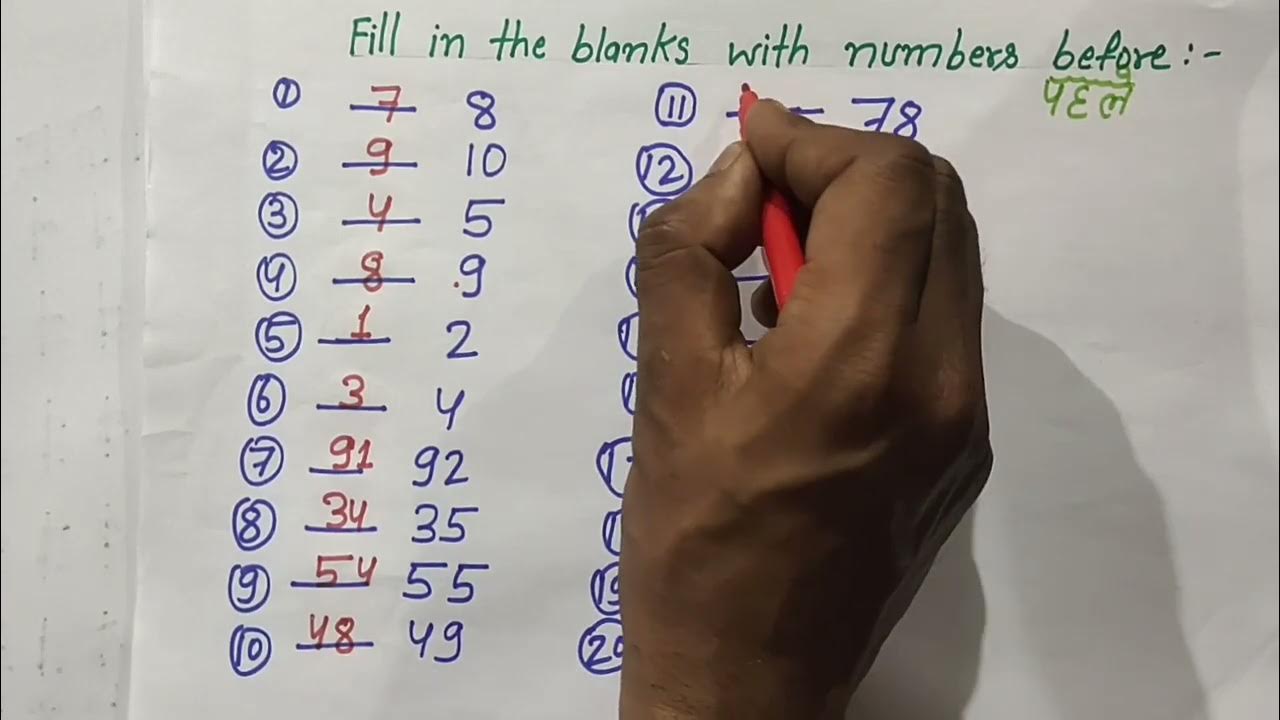 Fill in the blanks with numbers before:-
पहले
① 7 8
② 9 10
③ 4 5
④ 8 9
⑤ 1 2
⑥ 3 4
⑦ 91 92
⑧ 34 35
⑨ 54 55
⑩ 48 49
⑪ 78
⑫
⑳